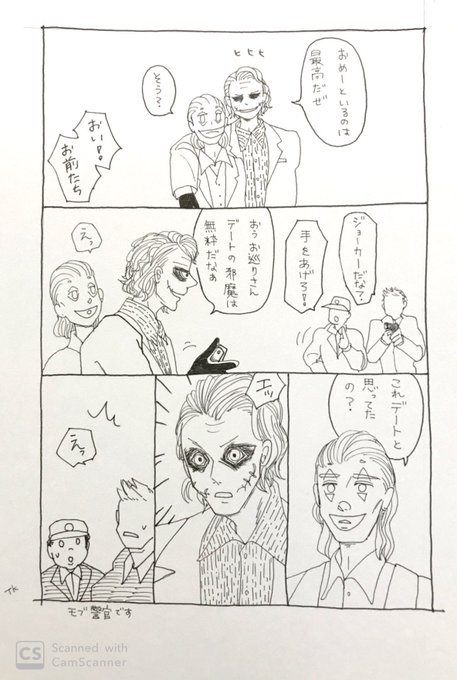 おめーといるのは
最高だぜ
ヒヒヒ
そう?
おい!!
お前たち
ジョーカーだな?
手をあげろ!!
おぅお巡りさん
デートの邪魔は
無粋だなぁ
えっ
これデートと
思ってた
の?
エッ
えっ
TK
モブ警官です
CS
Scanned with
CamScanner